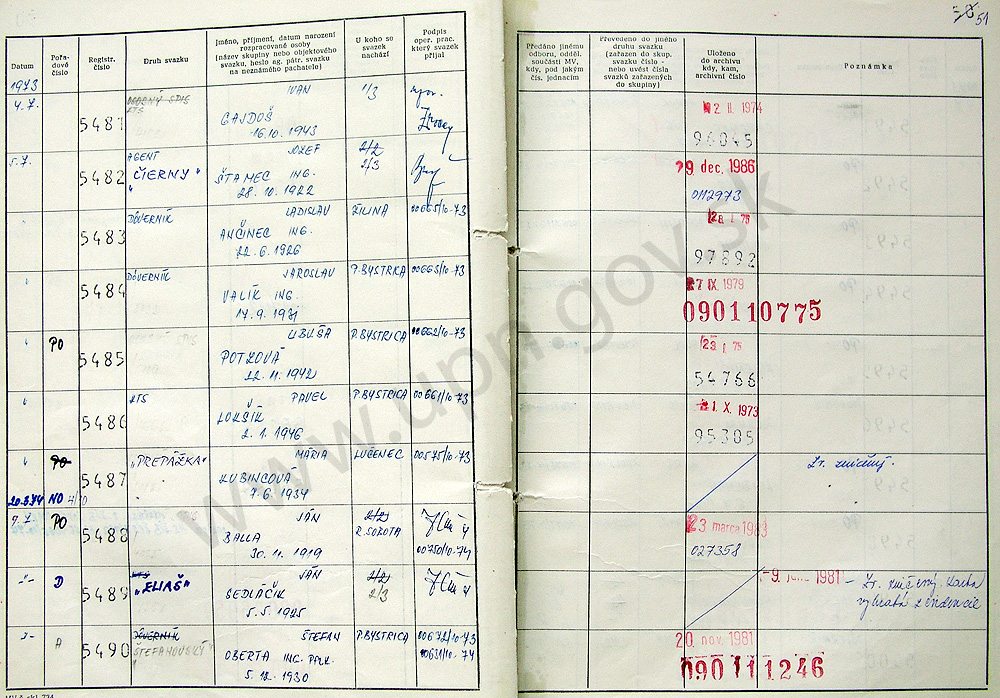 51
Datum
Pořadové číslo
Registr. číslo
Druh svazku
Jméno, příjmení, datum narození
rozpracované osoby
(název skupiny nebo objektového
svazku, heslo ag. pátr. svazku
na neznámého pachatele)
U koho se
svazek
nachází
Podpis
oper. prac.
který svazek
přijal
Předáno jinému
odboru, odděl.
součásti MV,
kdy, pod jakým
čís. jednacím
Převedeno do jiného
druhu svazku
(zařazen do skup.
svazku číslo -
nebo uvést čísla
svazků zařazených
do skupiny)
Uloženo
do archivu
kdy, kam,
archivní číslo
Poznámka
1973
4.7.
5481
OSOBNÝ SPIS
IVAN
GAJDOŠ
16.10. 1943
1/3
2. II. 1974
96045
5.7.
5482
AGENT
"ČIERNY"
JOZEF
ŠTAMEC ING.
28.10. 1922
2/2
2/3
29 dec. 1986
0112973
5483
DÔVERNÍK
LADISLAV
ANČINEC ING.
22.6. 1926
ŽILINA
00665/10-73
28. I. 75
97892
5484
DÔVERNÍK
JAROSLAV
VALÍK ING.
17.9. 1931
P. BYSTRICA
00663/10-73
27 IX. 1979
090110775
PO
5485
ĽUBUŠA
POTZOVÁ
22.11. 1942
P. BYSTRICA
00662/10-73
23. I. 75
54766
5486
KTS
PAVEL
LUKŠÍK
2.1. 1946
P. BYSTRICA
00661/10-73
1. X. 1973
95385
PO
5487
"PREPÁŽKA"
MÁRIA
KUBINCOVÁ
7.6. 1934
LUČENEC
00575/10-73
Zv. zničený.
NO
9.7.
PO
5488
JÁN
BALLA
30.11. 1919
2/2
R. SOBOTA
00750/10-74
23 marca 1983
027358
-"-
D
5489
"ELIAŠ"
JÁN
SEDLÁČIK
5.5 1925
2/2
2/3
-9. 1981
- Zv. zničený. karta
vybratá z evidencie
A
5490
DÔVERNÍK
"ŠTEFANOVSKÝ"
ŠTEFAN
OBERTA ING. PPLK.
5.12. 1930
P. BYSTRICA
00672/10-73
00631/10-74
20. nov. 1981
090111246
www.upn.gov.sk